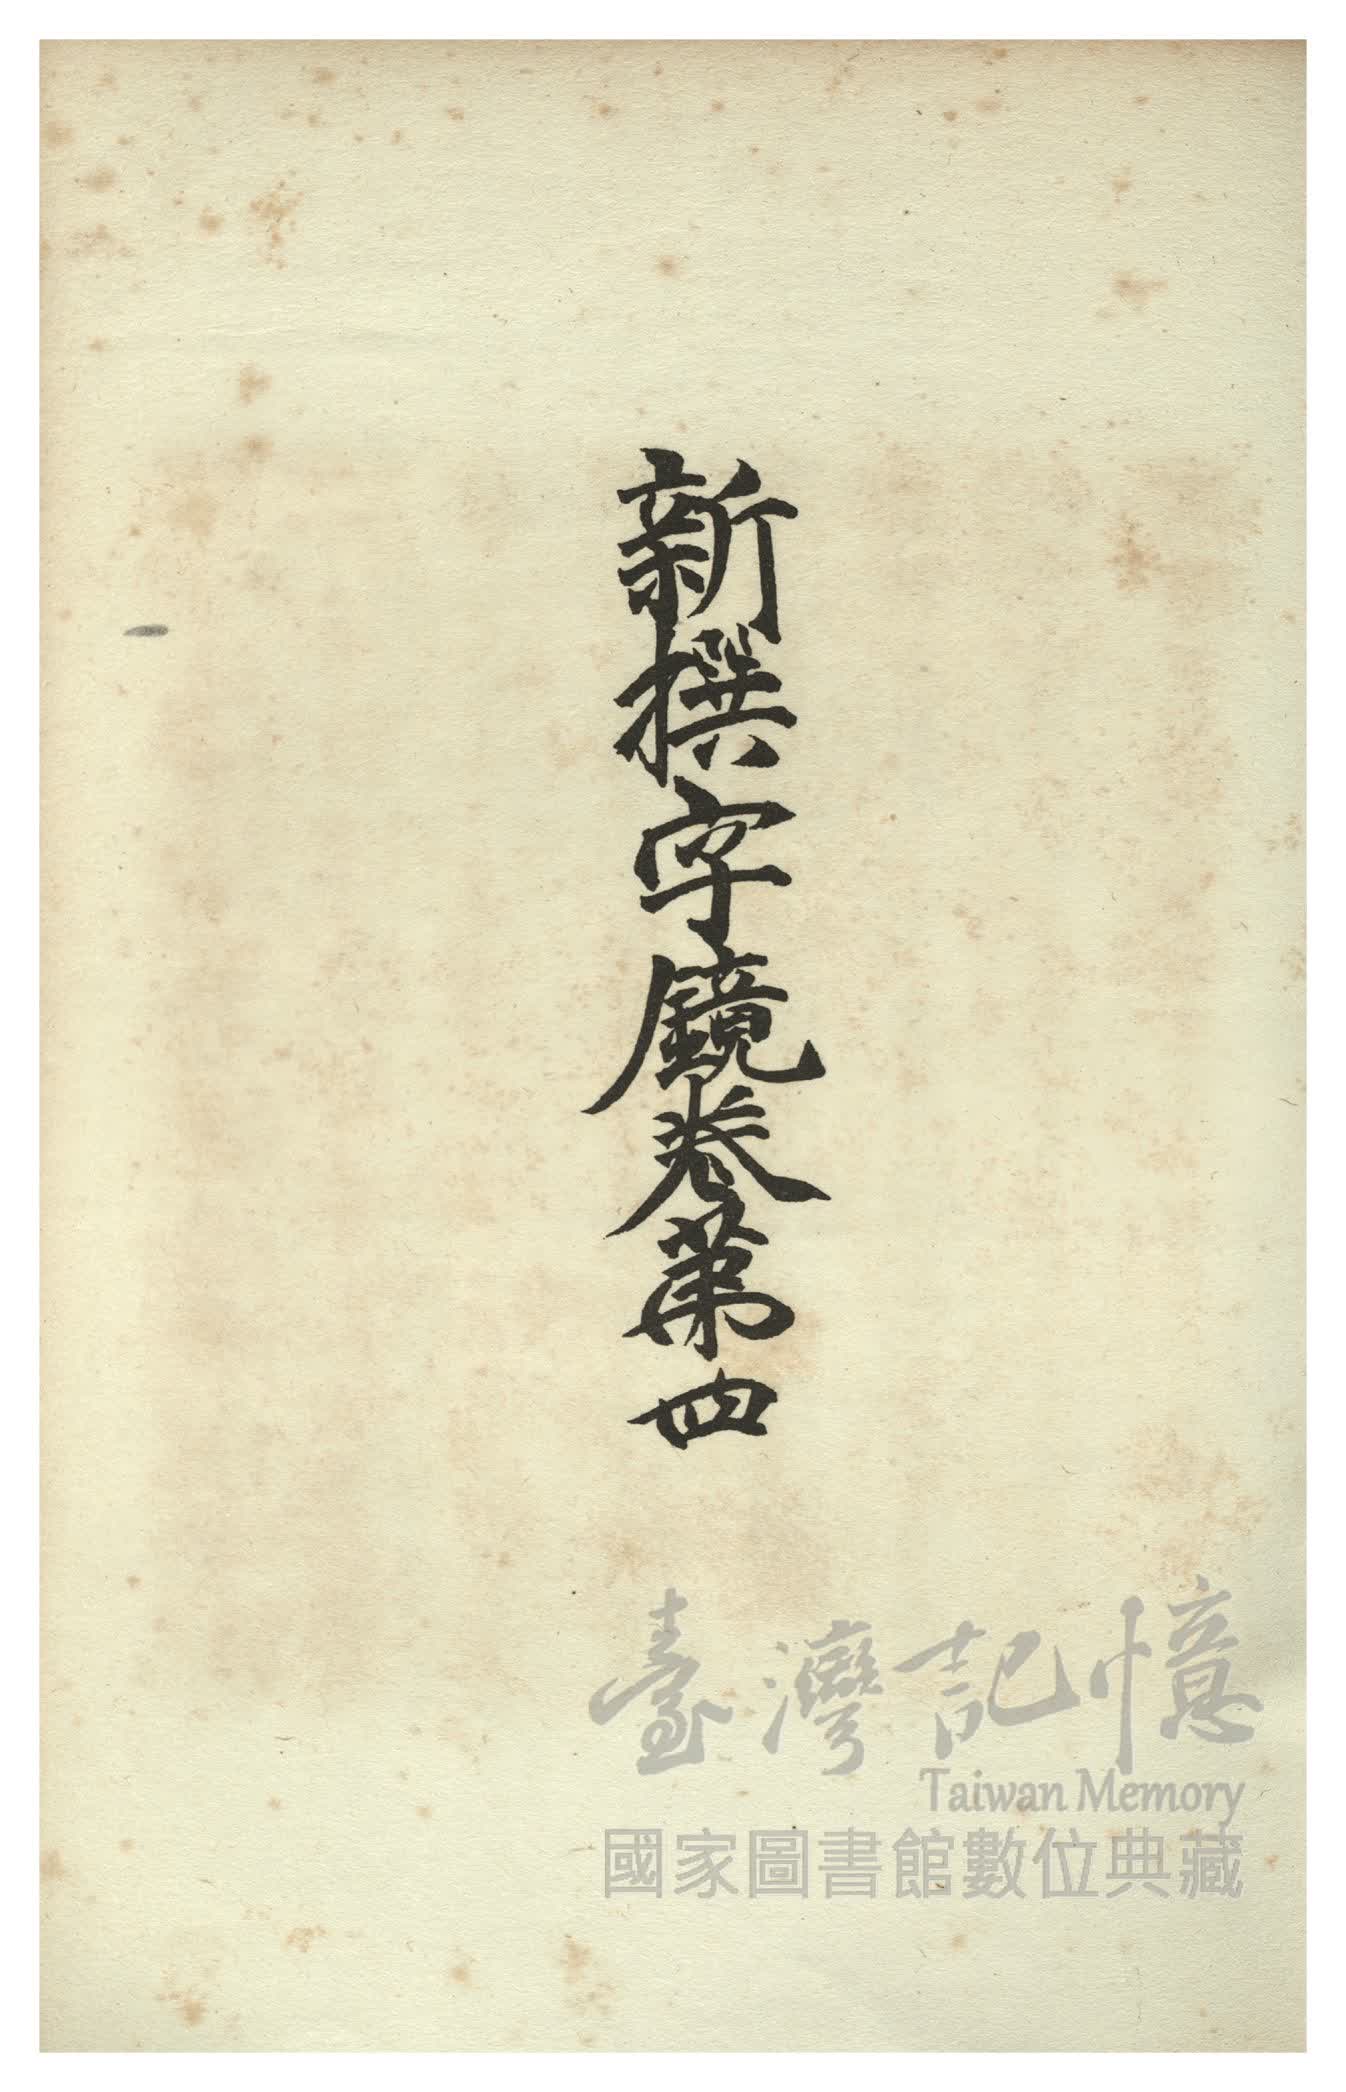 新撰字鏡卷第四
臺灣記憶
Taiwan Memory
國家圖書館數位典藏